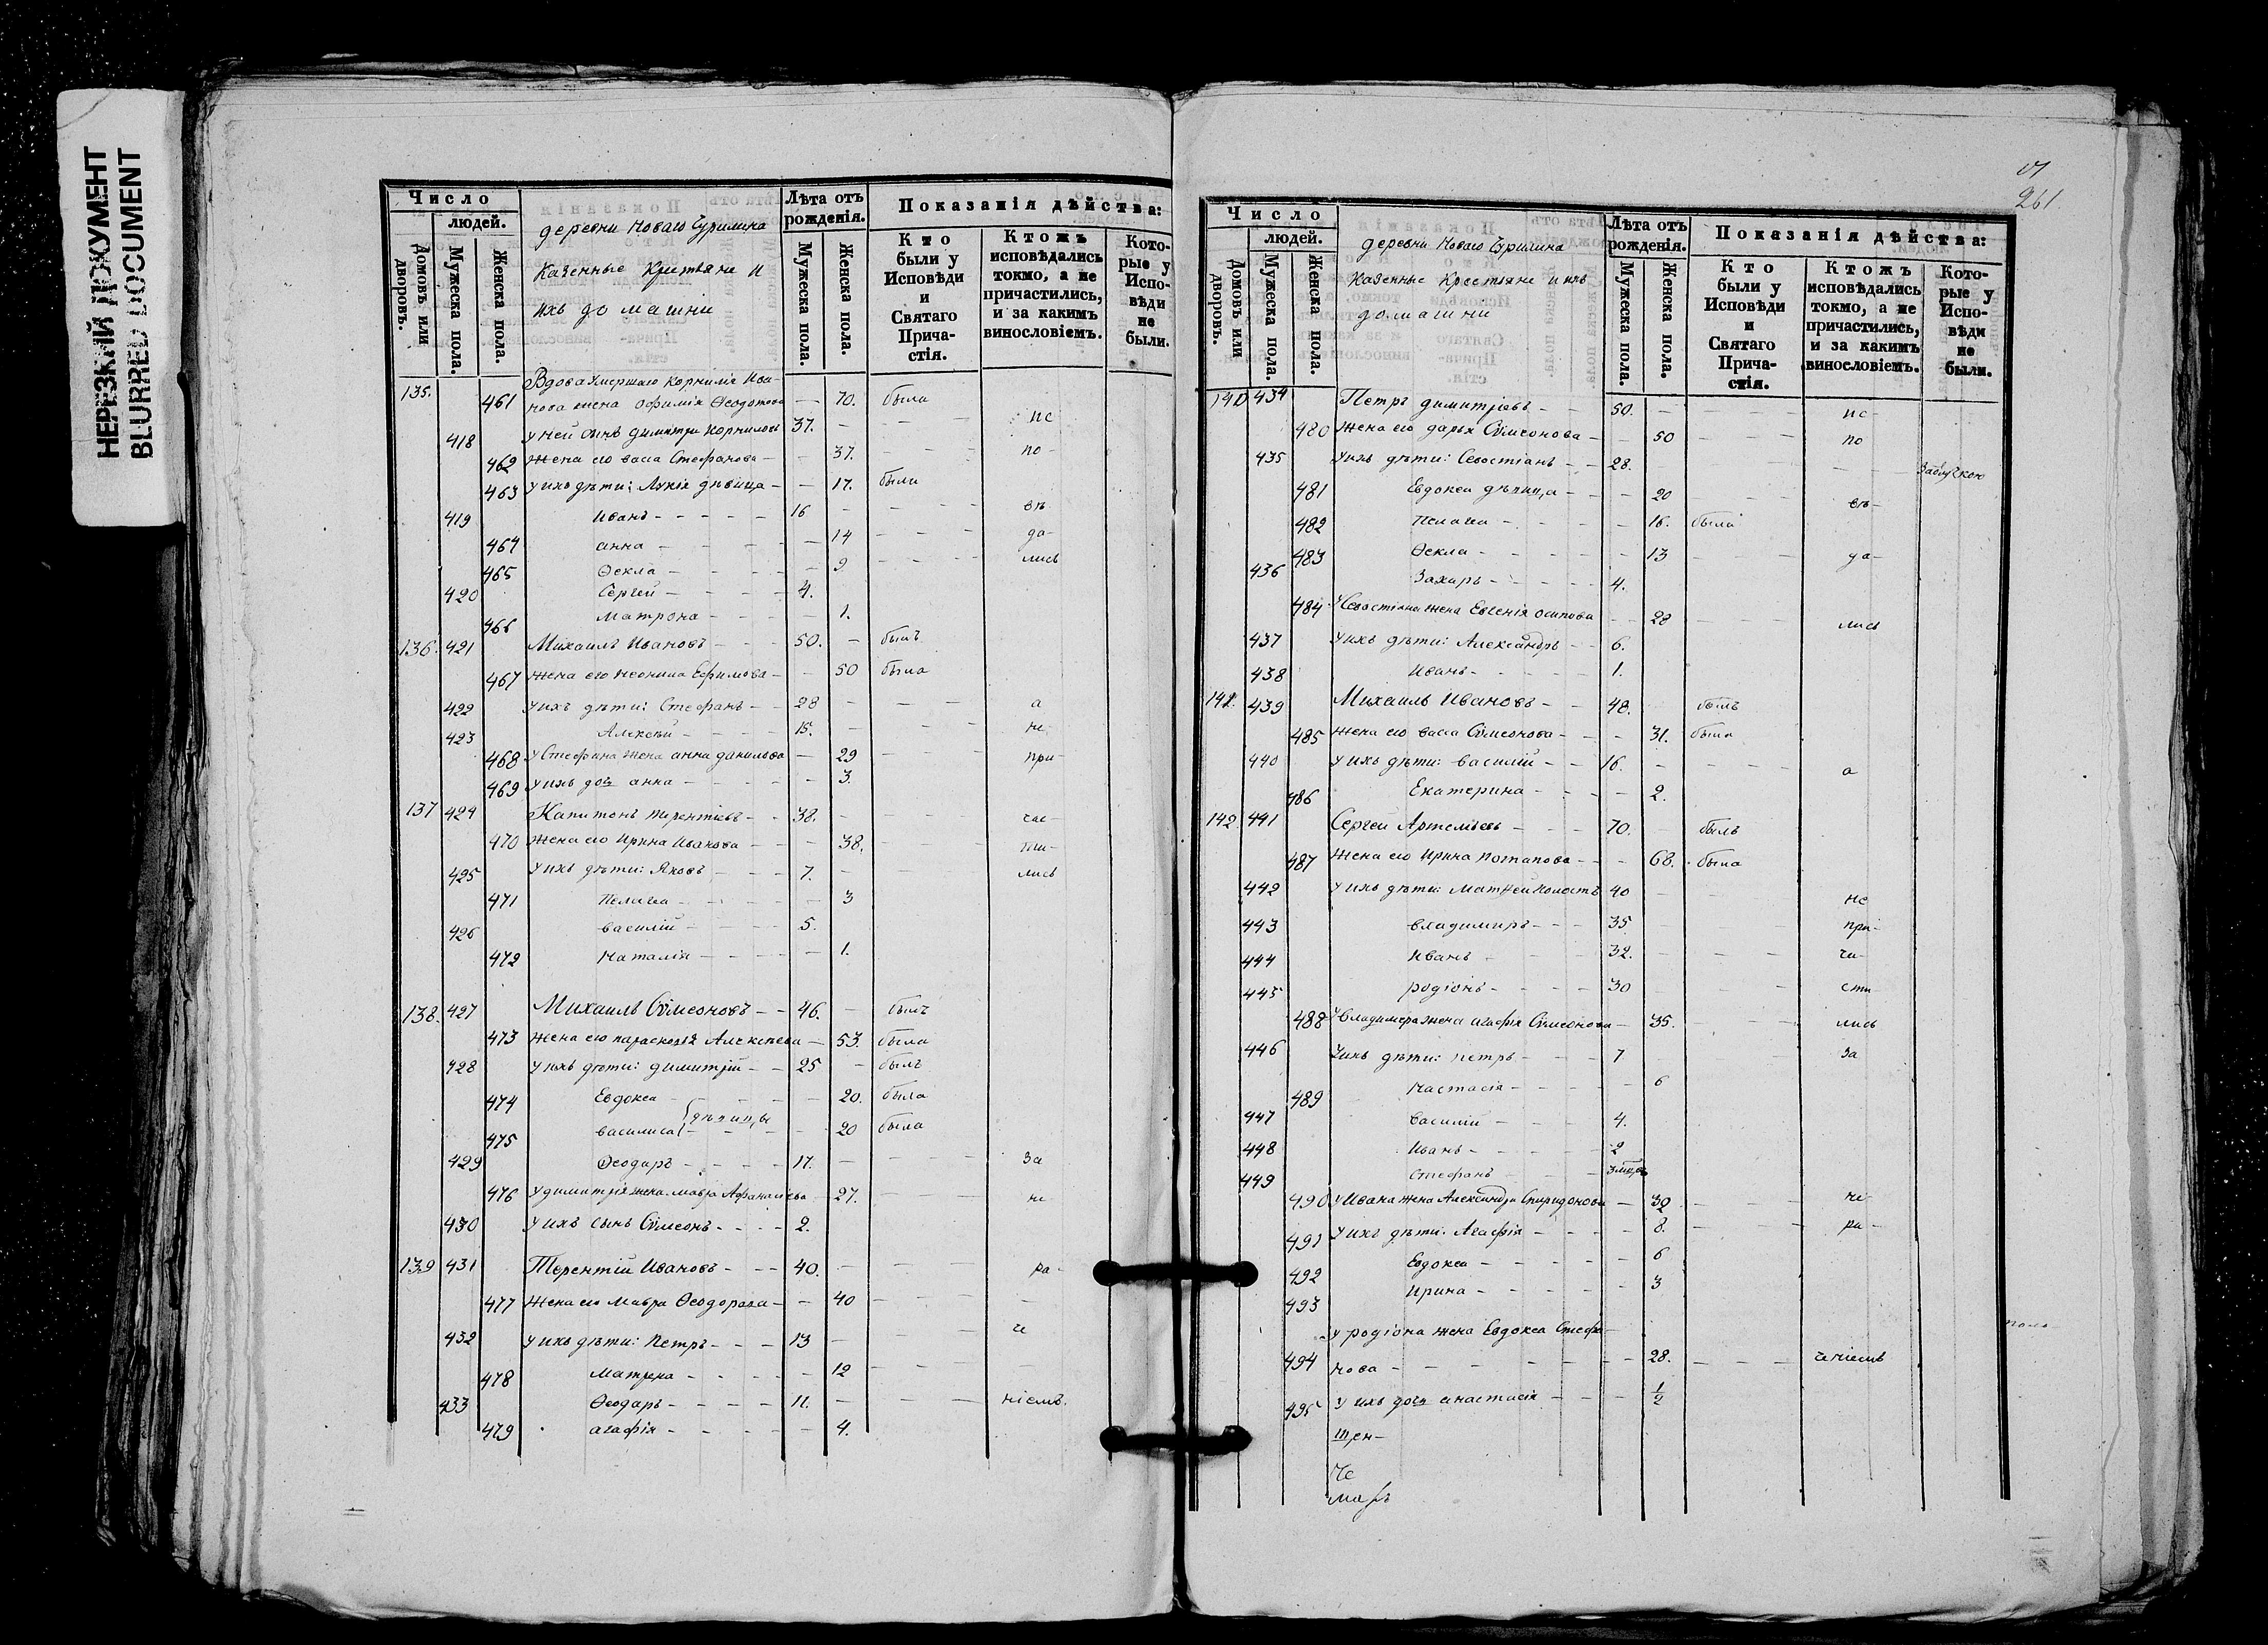 НЕРЕЗКИЙ ДОКУМЕНТ
BLURRED DOCUMENT
Число
людей.
Домовъ или дворовъ.
Мужеска пола.
Женска пола.
деревни Новаго Чурилина
Казенные Кртьяне и
ихъ домашни
Лѣта отъ рожденія.
Мужеска пола.
Женска пола.
Показанія дѣйства:
Кто были у Исповѣди и Святаго Прича-стія.
Ктожъ исповѣдались токмо, а не причастились, и за какимъ винословіемъ.
Кото-рые у Испо-вѣди не были.
135. Вдова умершаго Корнилія Ива-
461 нова жена Офимія Ѳеодотова — 70. была
418 у ней сынъ Димитри Корниловъ 37. — — — ис
462 Жена его васа Стефанова — — 37. — — — по-
463 у ихъ дѣти: Лукія дѣвица — — 17. была
419 иванъ - - - - - 16 — — — вѣ
464 анна — — 14 — — — да-
465 Ѳекла — — 9 — — — лись
420 Сергей — — 4.
466 матрона — — 1.
136. 421 Михаилъ Ивановъ — 50. — былъ
467 жена его неонила Ефимова — — 50 была
422 у ихъ дѣти: Стефанъ — — 28 — — — а
423 Алексѣй — — 15. — — не
468 у Стефана жена анна данилова — 29 — — — при-
469 у ихъ дочь анна — — 3.
137 424 Капитонъ терентіевъ — 38. — — — час-
470 жена его Ирина Иванова — — 38. — — ти-
425 у ихъ дѣти: Яковъ — — 7. — лись
471 пелагея — — 3
426 василій — — 5.
472 наталія — — 1.
138. 427 Михаилъ Сѵмеоновъ — — 46. — былъ
473 жена его параскевія Алексѣева — 53. была
428 у ихъ дѣти: димитрій — — 25 — былъ
474 Евдокеа — — 20. была
дѣвицы
475 василиса — — 20 была
429 Ѳеодаръ — — 17. — — — за
476 у димитрія жена мавра Афанасіева 27. — — — не
430 у ихъ сынъ Сѵмеонъ - - - - 2.
139 431 Терентій Ивановъ - - - 40. — — — ра-
477 Жена его мавра Ѳеодорова — — 40 — — — —
432 у ихъ дѣти: Петръ - - - 13 — — че
478 матрена — — 12 — — —
433 Ѳеодаръ - - - - 11. — — — ніемъ.
479 агафія - - - - 4.
261
Число
людей.
Домовъ или дворовъ.
Мужеска пола.
Женска пола.
деревни Новаго Чурилина
Казенные Крестьяне и ихъ
домашни
Лѣта отъ рожденія.
Мужеска пола.
Женска пола.
Показанія дѣйства:
Кто были у Исповѣди и Святаго Прича-стія.
Ктожъ исповѣдались токмо, а не причастились, и за какимъ винословіемъ.
Кото-рые у Испо-вѣди не были.
140 434 Петръ димитріевъ - - 50. — — ис-
480 Жена его дарья Сѵмеонова - — 50 — — — по
435 у ихъ дѣти: Севостіанъ - - 28. — — — —
481 Евдокеа дѣвица - - - 20 — — — вѣ-
482 пелагея - - - 16. была
483 Ѳекла - - - - 13 — — да-
436 Захаръ - - - - 4.
484 у Севостіана жена Евгенія осипова - - 28 — — — лись
437 у ихъ дѣти: Александръ - - 6.
438 иванъ - - - - - 1.
141. 439 Михаилъ Ивановъ - - 48. былъ
485 Жена его васа Сѵмеонова - - - 31. была
440 у ихъ дѣти: василій - - 16. - - - - а
486 Екатерина - - - - 2.
142. 441 Сергей Артемьевъ - - - 70. - былъ
487 Жена его Ирина потапова - - - 68. была
442 у ихъ дѣти: Матѳей холостъ 40 - - не
443 владимиръ - - - 35. - - - при-
444 иванъ - - - 32. - - - ча-
445 родіонъ - - - - 30 - - - сти
488 у владимера жена агафія Сѵмеонова - 35. - - - лись
446 у ихъ дѣти: петръ - - - 7 за
489 настасія - - - - 6
447 василій - - - - 4.
448 иванъ - - - - - 2
449 Стефанъ - - -
490 у Ивана жена Александра Спиридонова - 30 - - - не-
491 у ихъ дѣти: Агафія - - - - 8. - - - ра-
492 Евдокеа - - - - - 6
493 ирина - - - - - 3
у родіона жена Евдокеа Стефа-
494 нова - - - - - - - 28. - - - ченіемъ
495 у ихъ дочь анастасія - - - 1/2